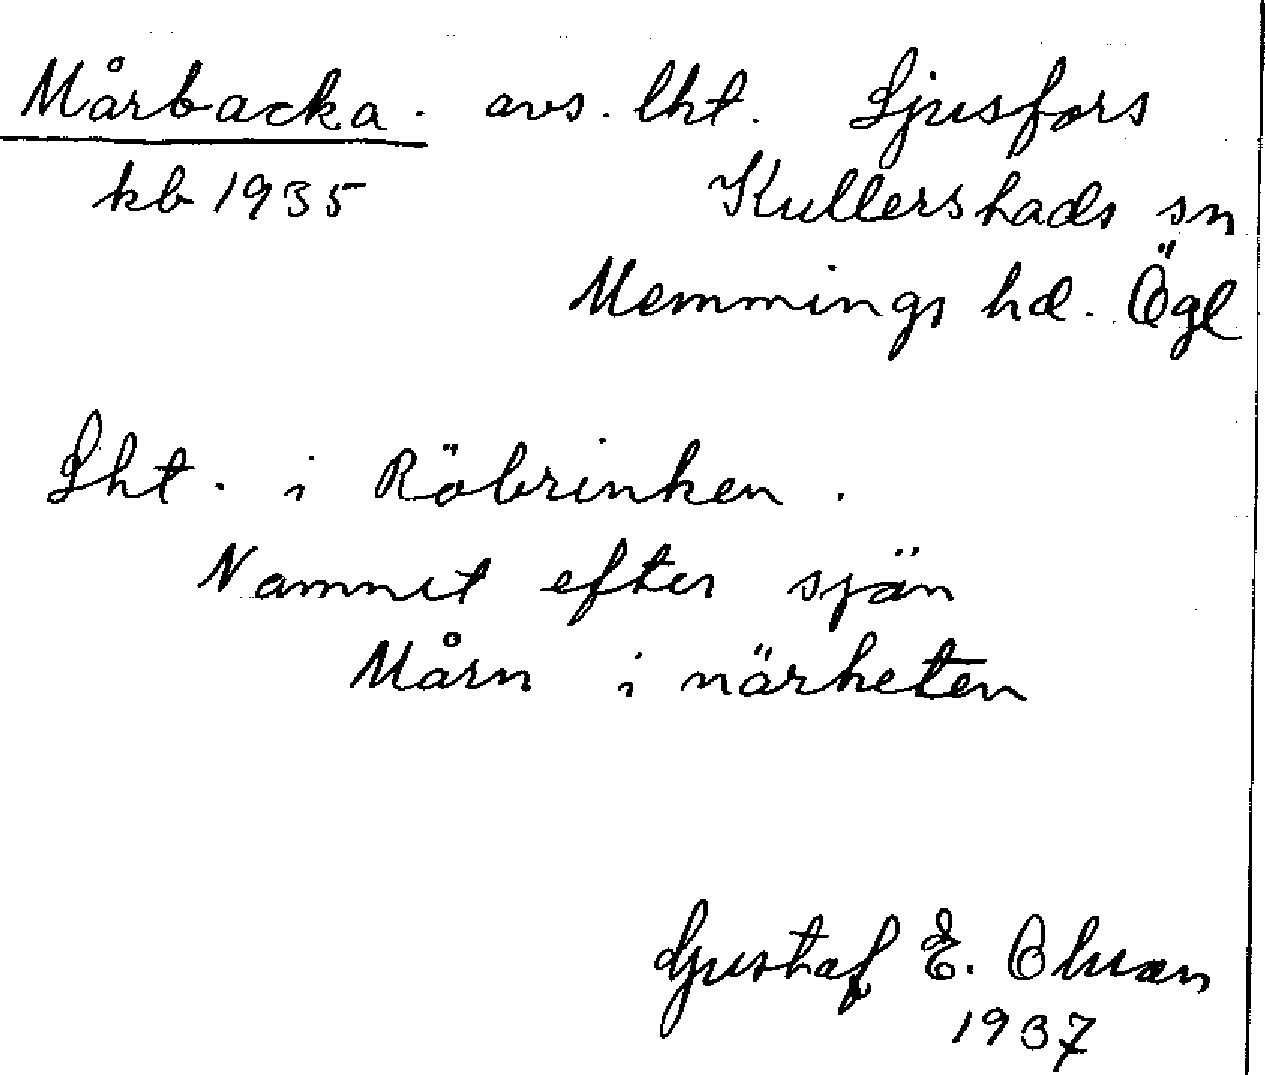 Mårbacka. avs. lht. Ljusfors
kb 1935 Kullerstads sn
Memmings hd. Ögl
Lht. i Röbrinken.
Namnet efter sjön
Mårn i närheten
Gustaf E. Olsson
1937